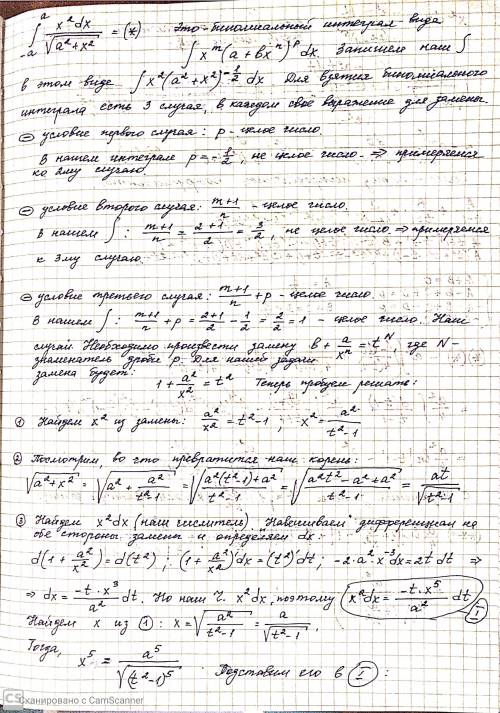 ∫_{-a}^{a} x² dx / √(a² + x²) = (*) Это - биномиальный интеграл вида
∫ x^m (a + bx^n)^p dx Запишем наш ∫
в этом виде ∫ x² (a² + x²)^{-1/2} dx Для взятия биномиального
интеграла есть 3 случая, в каждом своё выражение для замены.
⊖ условие первого случая: p - целое число.
В нашем интеграле p = -1/2, не целое число. ⇒ примеряемся
ко 2му случаю
⊖ условие второго случая: (m+1)/n - целое число.
В нашем ∫: (m+1)/n = (2+1)/2 = 3/2, не целое число ⇒ примеряемся
к 3му случаю
⊖ условие третьего случая: (m+1)/n + p - целое число.
В нашем ∫: (m+1)/n + p = (2+1)/2 - 1/2 = 2/2 = 1 - целое число. Наш
случай. Необходимо произвести замену b + a/x^n = t^N, где N -
знаменатель дроби p. Для нашей задачи
замена будет: 1 + a²/x² = t² Теперь пробуем решать:
① Найдем x² из замены: a²/x² = t² - 1 ; x² = a²/(t² - 1)
② Посмотрим во что превратится наш корень:
√(a² + x²) = √(a² + a²/(t² - 1)) = √((a²(t² - 1) + a²)/(t² - 1)) = √((a²t² - a² + a²)/(t² - 1)) = at/√(t² - 1)
③ Найдем x² dx (наш числитель). "Навешиваем" дифференциал на
обе стороны замены и определяем dx:
d(1 + a²/x²) = d(t²) ; (1 + a²/x²)' dx = (t²)' dt ; -2·a²·x^{-3} dx = 2t dt ⇒
⇒ dx = (-t·x³/a²) dt. Но нам нужен x² dx, поэтому x² dx = (-t·x⁵/a²) dt Ⓘ
Найдем x из ①: x = √(a²/(t² - 1)) = a/√(t² - 1),
Тогда, x⁵ = a⁵/√((t² - 1)⁵) Подставим его в Ⓘ :
CS Сканировано с CamScanner